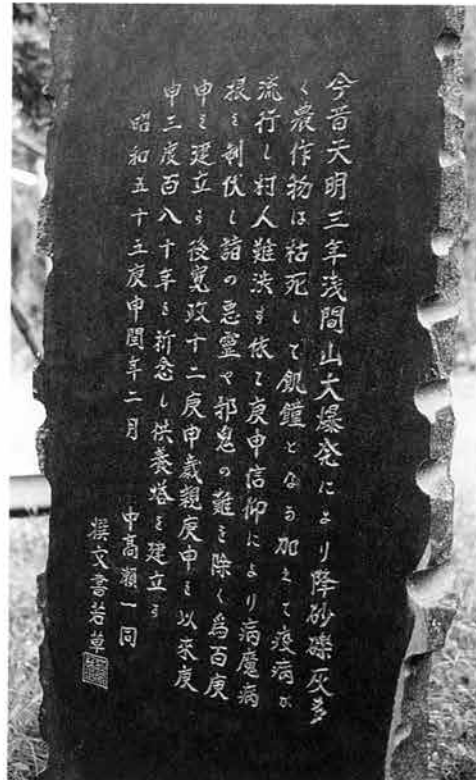 今昔天明三年浅間山大爆発により降砂礫灰多
く農作物は枯死して飢饉となる加えて疫病が
流行し村人難渋す依て庚申信仰により病魔病
根を制伏し諸の悪霊や邪鬼の難を除く為百庚
申を建立す後寛政十二庚申歳親庚申を以来庚
申三度百八十年を祈念し供養塔を建立す
昭和五十五庚申閏年二月
中高瀬一同
撰文書若草